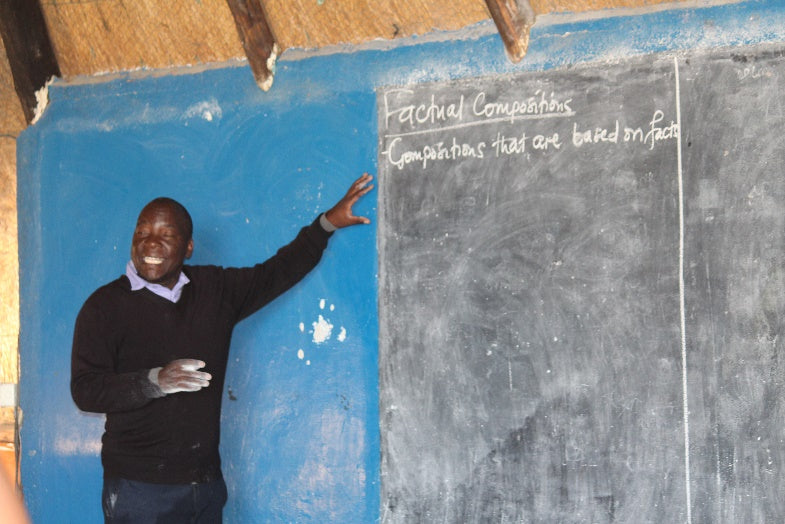 Factual Compositions
-Compositions that are based on facts